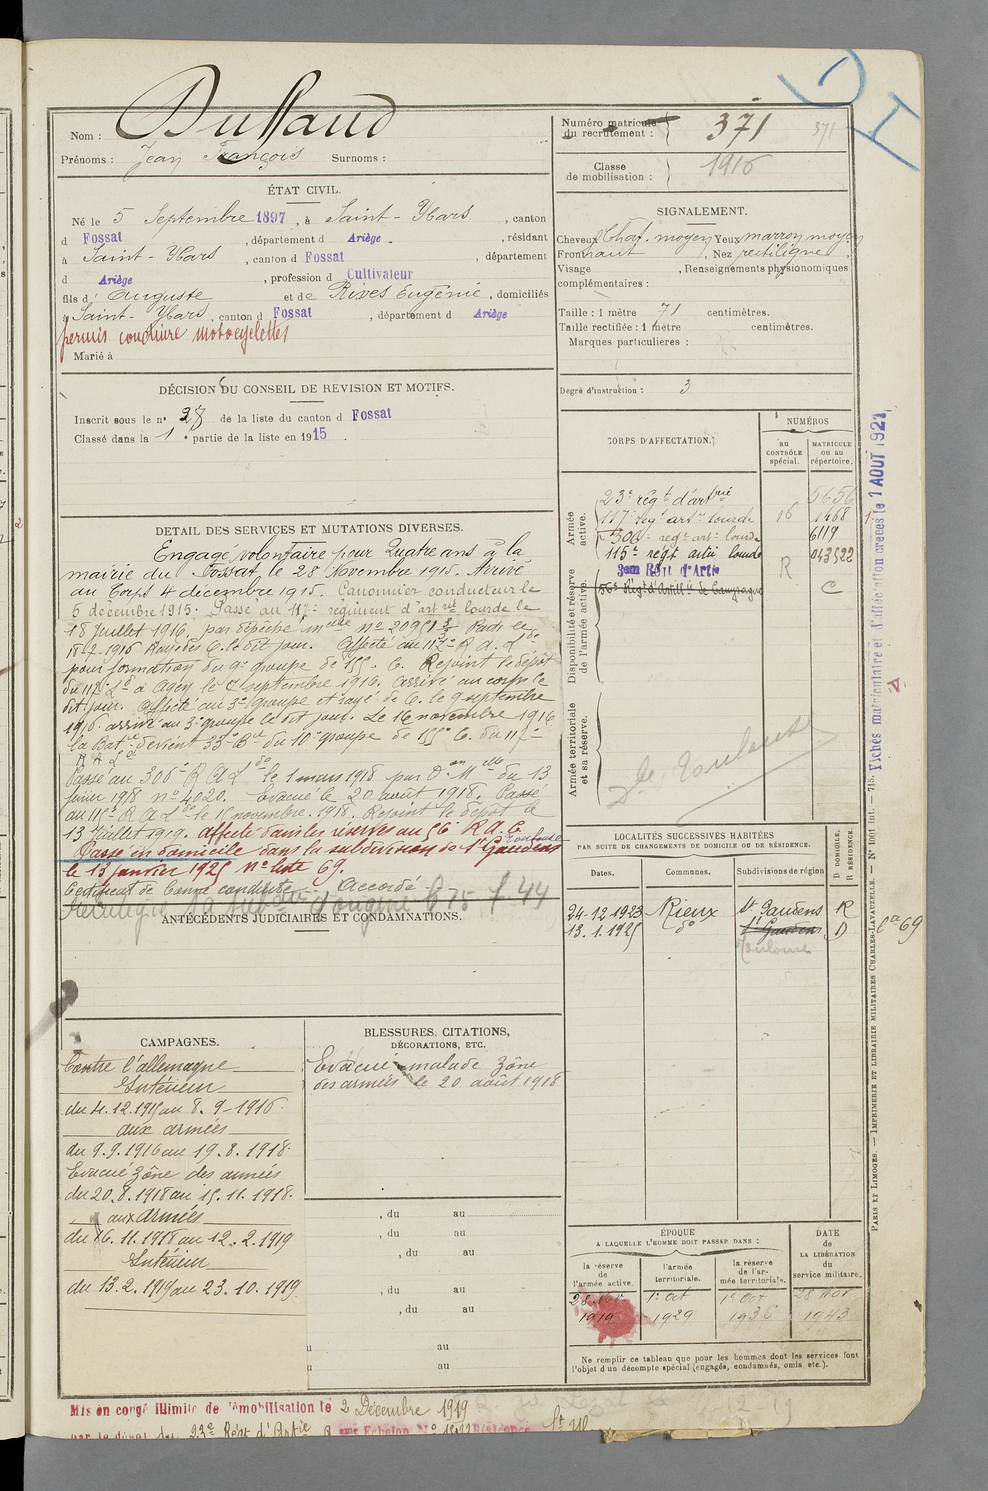 Nom : Dussaud
Prénoms : Jean François Surnoms :
ÉTAT CIVIL.
Né le 5 Septembre 1897, à Saint-Ybars, canton
d Fossat, département d Ariège, résidant
à Saint-Ybars, canton d Fossat, département
d Ariège, profession d Cultivateur
fils d' Auguste et de Rives Eugénie, domiciliés
à Saint-Ybars, canton d Fossat, département d Ariège
permis conduire motocyclettes
Marié à
DÉCISION DU CONSEIL DE REVISION ET MOTIFS.
Inscrit sous le n° 28 de la liste du canton d Fossat
Classé dans la 1e partie de la liste en 1915.
DETAIL DES SERVICES ET MUTATIONS DIVERSES.
Engagé volontaire pour Quatre ans à la
mairie du Fossat le 28 Novembre 1915. Arrivé
au Corps 4 décembre 1915. Canonnier conducteur le
5 décembre 1915. Passé au 117e régiment d'art rie lourde le
18 Juillet 1916, par dépêche m elle n° Parti le
Affecté au 117e R.A.L de
pour formation du 9e groupe de 155. C. Rejoint le dépôt
du 117e L de à Agen le septembre 1916. arrivé au corps le
dit jour. Affecté au 3e groupe et rayé de C. le 9 septembre
1916. arrivé au 3e groupe le dit jour. Le 16 novembre 1916
la Bat rie devient 33e B ie du 10e groupe de 155 C. du 117e
R A L de
Passé au 306e R A L de le 1 mars 1918 par D on M elle du 13
février 1918 n° 4020. Evacué le 20 août 1918. Passé
au 115e R A L de le novembre 1918. Rejoint le dépôt le
13 Juillet 1919. Affecté dans les réserves au 56e R.A.C.
Passé en domicile dans la subdivision de St Gaudens Toulouse
le 13 janvier 1925 N° liste 69.
Certificat de bonne conduite Accordé
ANTÉCÉDENTS JUDICIAIRES ET CONDAMNATIONS.
CAMPAGNES.
Contre l'allemagne
Intérieur
du 4.12.1915 au 8.9-1916.
aux armées
du 9.9.1916 au 19.8.1918.
Evacué Zône des armées
du 20.8.1918 au 15.11.1918.
aux armées
du 16.11.1918 au 12.2.1919
Intérieur
du 13.2.1919 au 23.10.1919.
BLESSURES, CITATIONS,
DÉCORATIONS, ETC.
Evacué malade Zône
des armées le 20 août 1918
, du au
, du au
, du au
, du au
, du au
u au
u au
Numéro matricule
du recrutement : 371
371
Classe
de mobilisation : 1916
SIGNALEMENT.
Cheveux Chat. moyen Yeux marron moyen
Front haut, Nez rectiligne,
Visage , Renseignements physionomiques
complémentaires :
Taille : 1 mètre 71 centimètres.
Taille rectifiée : 1 mètre centimètres.
Marques particulières :
Degré d'instruction : 3
CORPS D'AFFECTATION.
NUMÉROS
AU CONTRÔLE spécial.
MATRICULE ou au répertoire.
Armée active.
23e rég t d'art rie 5656
117e rég t art ie lourde 16 1468
306e reg t art ie lourde 6119
115e regt artie lourde 043522
Disponibilité et réserve de l'armée active.
3em Rgt d'Artie R
56e Régt d'Artill ie de Campagne C
Armée territoriale et sa réserve.
Toulouse
LOCALITÉS SUCCESSIVES HABITÉES
PAR SUITE DE CHANGEMENTS DE DOMICILE OU DE RÉSIDENCE.
D DOMICILE.
R RÉSIDENCE.
Dates. Communes. Subdivisions de région
24-12-1923 Rieux St Gaudens R
13.1.1925 do St Gaudens D
Toulouse
69
ÉPOQUE
A LAQUELLE L'HOMME DOIT PASSER DANS :
DATE de LA LIBÉRATION du service militaire.
la réserve de l'armée active.
l'armée territoriale.
la réserve de l'armée territoriale.
28 Nov. 1919
1er Oct 1929
1er Oct 1936
28 nov 1943
Ne remplir ce tableau que pour les hommes dont les services font
l'objet d'un décompte spécial (engagés, condamnés, omis, etc.).
Mis en congé illimité de démobilisation le 2 Décembre 1919
par le dépôt du 23e Régt d'Artie
Fiches matriculaire et d'affectation créées le 1 AOUT 1921
PARIS ET LIMOGES. — IMPRIMERIE ET LIBRAIRIE MILITAIRES CHARLES-LAVAUZELLE. — N° 1001 Int. — 715.